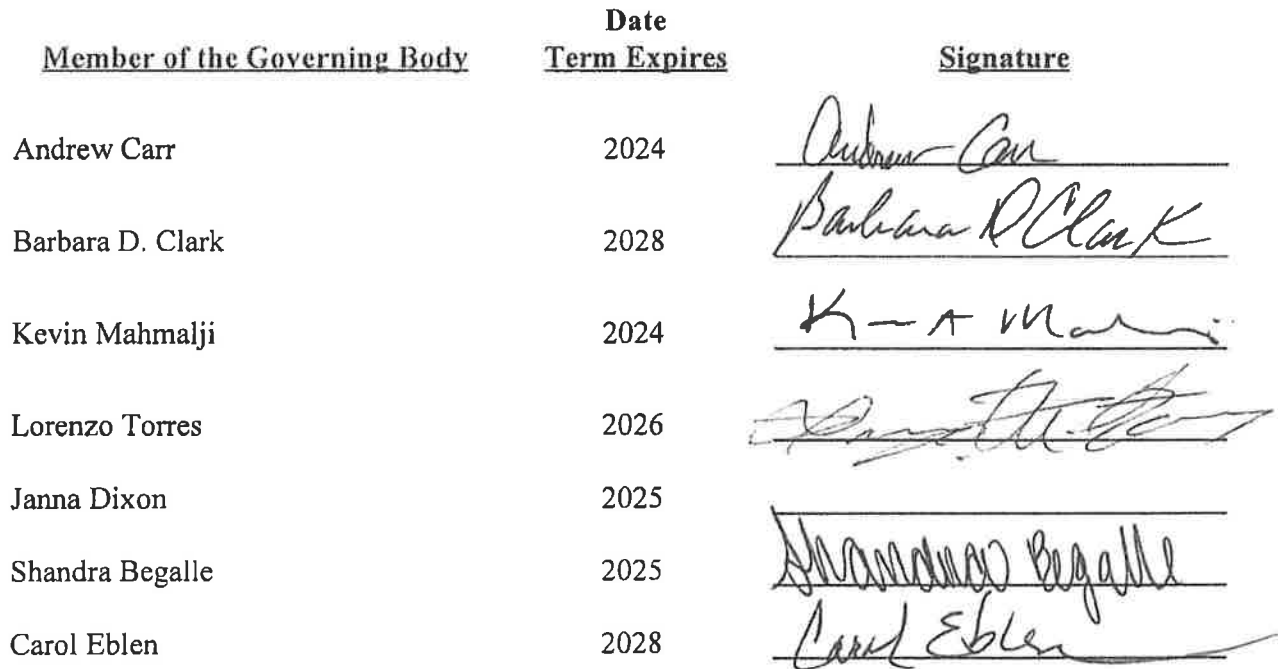 Date
Member of the Governing Body Term Expires Signature
Andrew Carr 2024 Andrew Carr
Barbara D. Clark 2028 Barbara D Clark
Kevin Mahmalji 2024 K A Ma
Lorenzo Torres 2026
Janna Dixon 2025
Shandra Begalle 2025 Shandra Begalle
Carol Eblen 2028 Carol Eblen